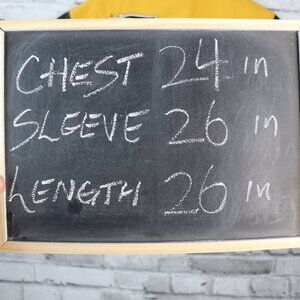 CHEST 24 in
SLEEVE 26 in
LENGTH 26 in